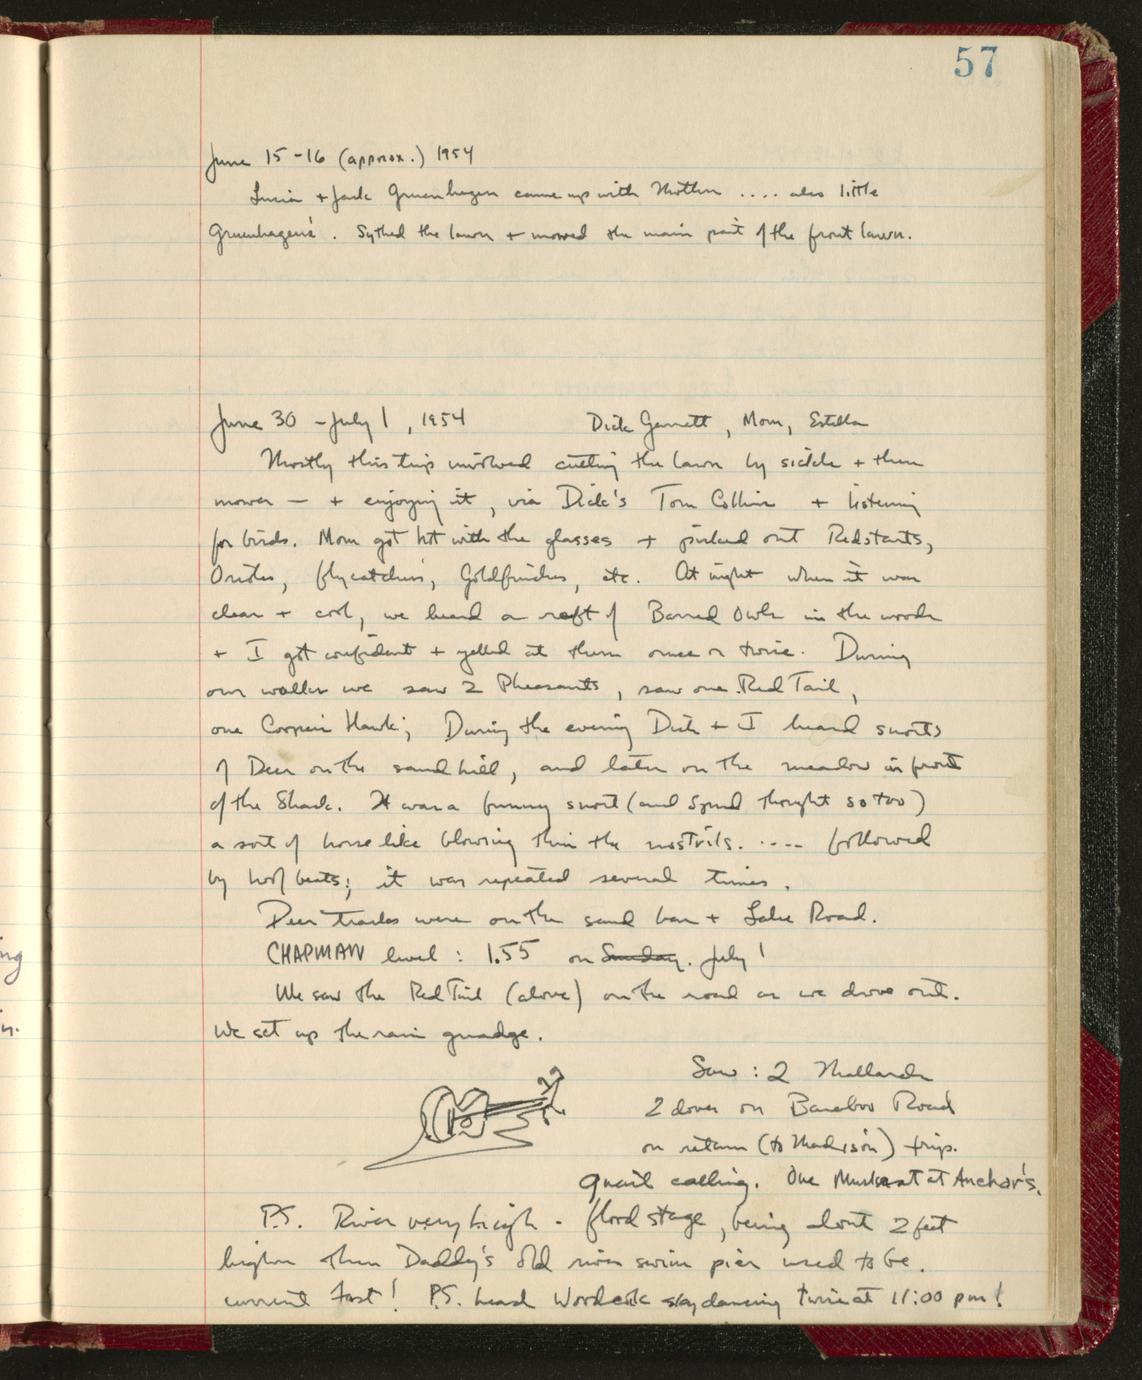 57
June 15-16 (approx.) 1954
Lucia + Jack Gruenhagen came up with Mother .... also little
Gruenhagen's. Sythed the lawn + mowed the main part of the front lawn.
June 30 - July 1, 1954 Dick Garrett, Mom, Estella
Mostly this trip involved cutting the lawn by sickle + then
mower — + enjoying it, via Dick's Tom Collins + listening
for birds. Mom got hit with the glasses + picked out Redstarts,
Orioles, flycatchers, Goldfinches, etc. At night when it was
clear + cool, we heard a raft of Barred Owls in the woods
+ I got confident + yelled at them once or twice. During
our walks we saw 2 Pheasants, saw one Red Tail,
one Coopers Hawk; During the evening Dick + I heard snorts
of Deer on the sand hill, and later on the meadow in front
of the Shack. It was a funny snort (and Spud thought so too)
a sort of horse like blowing thru the nostrils. .... followed
by hoof beats; it was repeated several times.
Deer tracks were on the sand bar + Lake Road.
CHAPMAN level: 1.55 on Sunday. July 1
We saw the Red Tail (above) on the road as we drove out.
We set up the rain guadge.
Saw: 2 Mallards
2 doves on Baraboo Road
on return (to Madison) trip.
Quail calling. One Muskrat at Anchor's.
P.S. River very high - flood stage, being about 2 feet
higher than Daddy's old river swim pier used to be.
current fast! P.S. heard Woodcock skydancing twice at 11:00 pm!
ng
n.